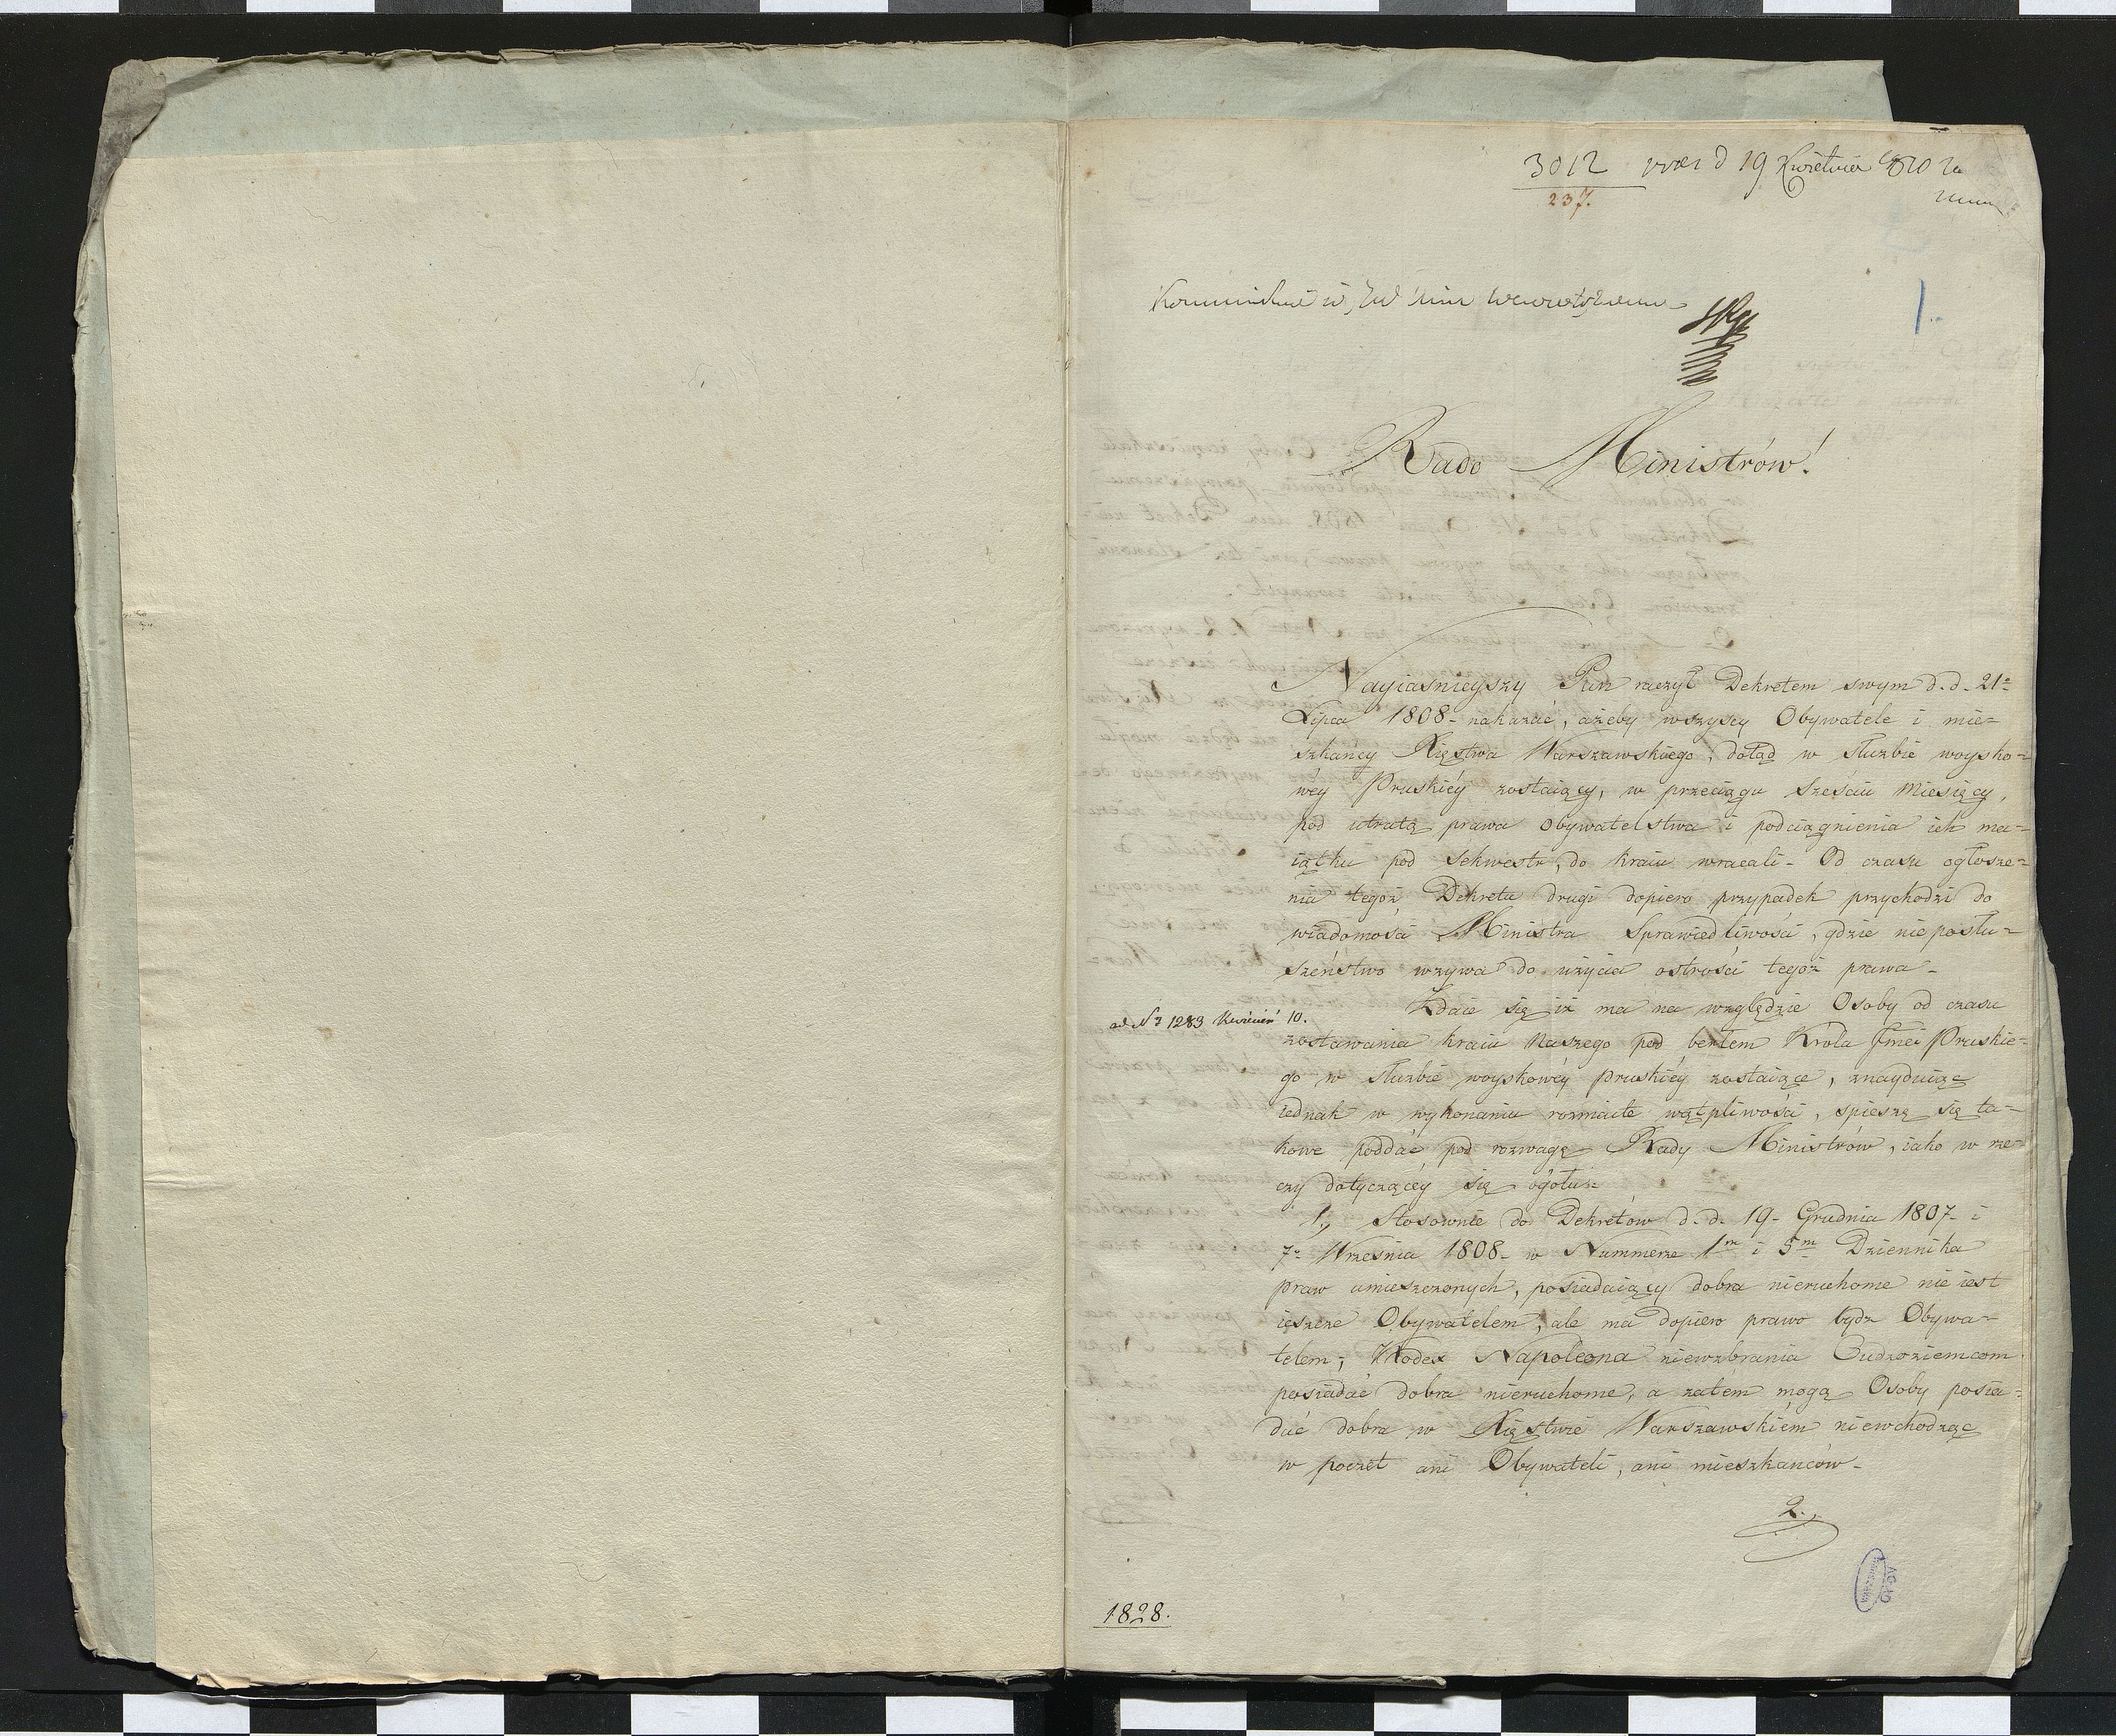 3012 d 19 Kwietnia 1810
237.
1.
Rado Ministrów!
Nayiasnieyszy Pan raczył Dekretem swym d. d. 21º
Lipca 1808 - nakazać, ażeby wszyscy Obywatele i mie=
szkańcy Xięstwa Warszawskiego, dotąd w służbie woysko=
wéy Pruskiéy zostaiący, w przeciągu Sześciu Miesięcy,
pod utratą prawa obywatelstwa i podciągnienia ich ma=
iątku pod Sekwestr, do kraiu wracali - Od czasu ogłosze=
nia tegoż Dekretu drugi dopiero przypadek przychodzi do
wiadomości Ministra Sprawiedliwości, gdzie nieposłu=
szeństwo wzywa do użycia ostrości tegoż prawa -
Zdaie się iż ma na względzie Osoby od czasu
ad Nº 1283 Kwiecień 10.
zostawania kraiu Naszego pod berłem Króla Jmći Pruskie=
go w służbie woyskowéy pruskiéy zostaiące, znayduiąc
iednak w wykonaniu rozmaite wątpliwości, spieszę się ta=
kowe poddać pod rozwagę Rady Ministrów, iako w rze=
czy dotyczącéy się ogółu=
1., Stosownie do Dekretów d. d. 19 - Grudnia 1807 - i
7º Września 1808 - w Nummerze 1m i 5m Dziennika
praw umieszczonych, posiadaiący dobra nieruchome nie iest
ieszcze Obywatelem, ale ma dopiero prawo bydz Obywa=
telem; Kodex Napoleona niewzbrania Cudzoziemcom
posiadać dobra nieruchome, a zatem mogą Osoby posia=
dać dobra w Xięstwie Warszawskiém niewchodząc
w poczet ani Obywateli, ani mieszkańców -
2.,
1828.